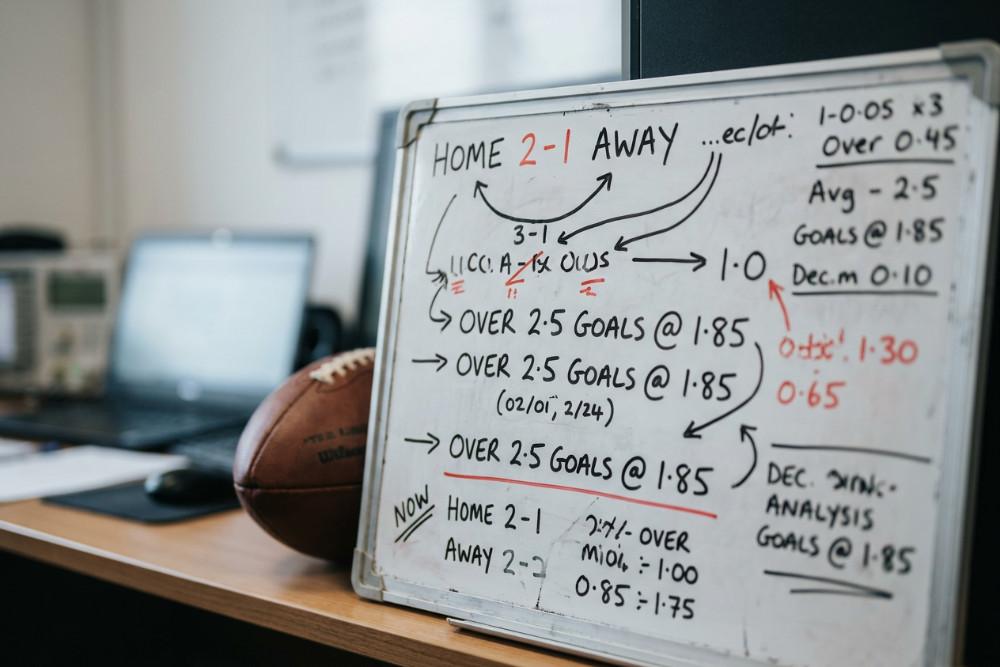 HOME 2-1 AWAY
3-1
1.0
OVER 2.5 GOALS @ 1.85
OVER 2.5 GOALS @ 1.85
(02/01, 2/24)
OVER 2.5 GOALS @ 1.85
NOW
HOME 2-1
AWAY 2-2
OVER
÷ 1.00
0.85 ÷ 1.75
1-0.05 x3
Over 0.45
Avg - 2.5
GOALS @ 1.85
Dec.m 0.10
1.30
0.65
DEC.
ANALYSIS
GOALS @ 1.85
Wilson